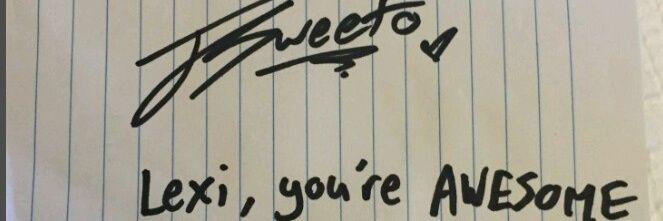 JSweeto
Lexi, you're AWESOME